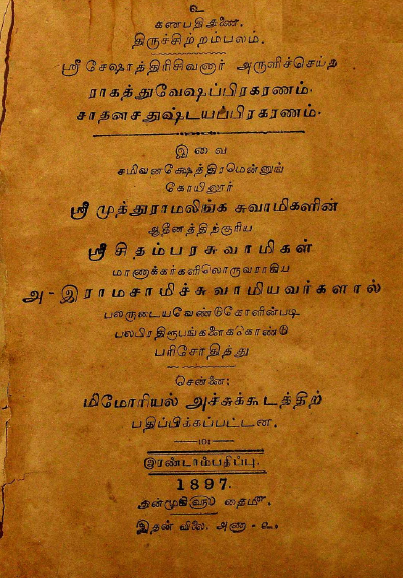 உ
கணபதிதுணை.
திருச்சிற்றம்பலம்.
ஸ்ரீ சேஷாத்திரிசிவனார் அருளிச்செய்த
ராகத்துவேஷப்பிரகரணம்.
சாதனசதுஷ்டயப்பிரகரணம்.
இவை
சமிவனக்ஷேத்திரமென்னுங்
கோயிலூர்
ஸ்ரீ முத்துராமலிங்க சுவாமிகளின்
ஆதீனத்திற்குரிய
ஸ்ரீ சிதம்பரசுவாமிகள்
மாணாக்கர்களிலொருவராகிய
அ-இராமசாமிச்சுவாமியவர்களால்
பலருடையவேண்டுகோளின்படி
பலபிரதிரூபங்களைக்கொண்டு
பரிசோதித்து
சென்னை:
மிமோரியல் அச்சுக்கூடத்திற்
பதிப்பிக்கப்பட்டன.
இரண்டாம்பதிப்பு.
1897.
துன்முகி௵ தை௴
இதன் விலை, அணா - ௨.